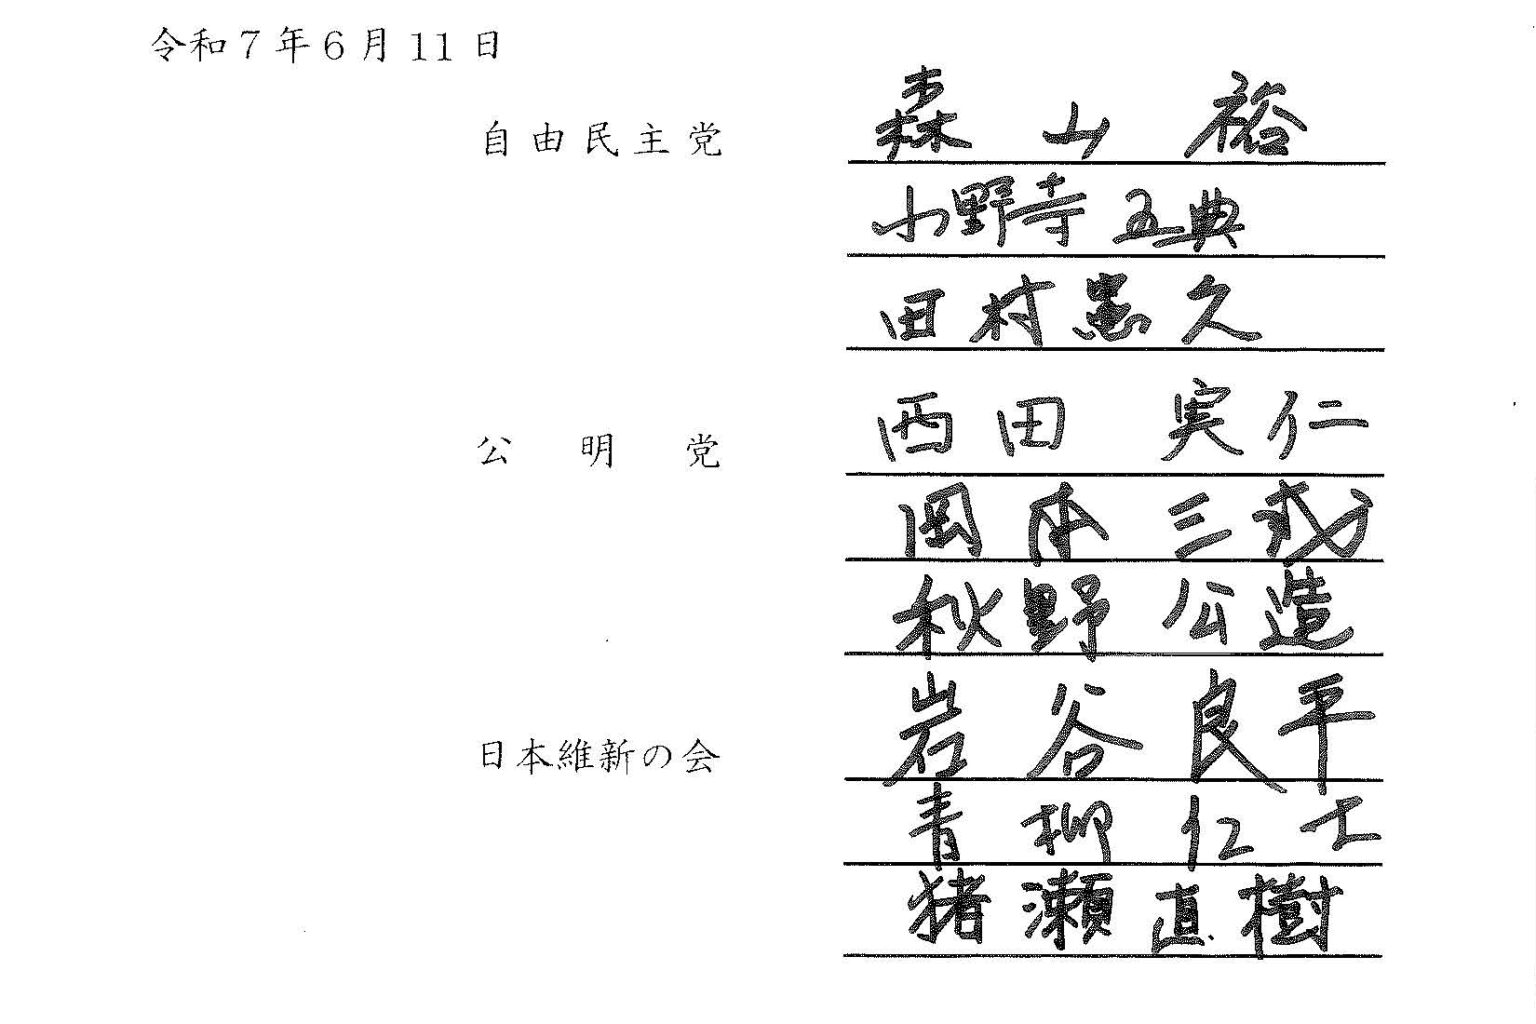 令和7年6月11日
自由民主党 森山 裕
小野寺五典
田村憲久
公明党 西田 実仁
岡本三成
秋野公造
日本維新の会 岩谷良平
青柳仁士
猪瀬直樹